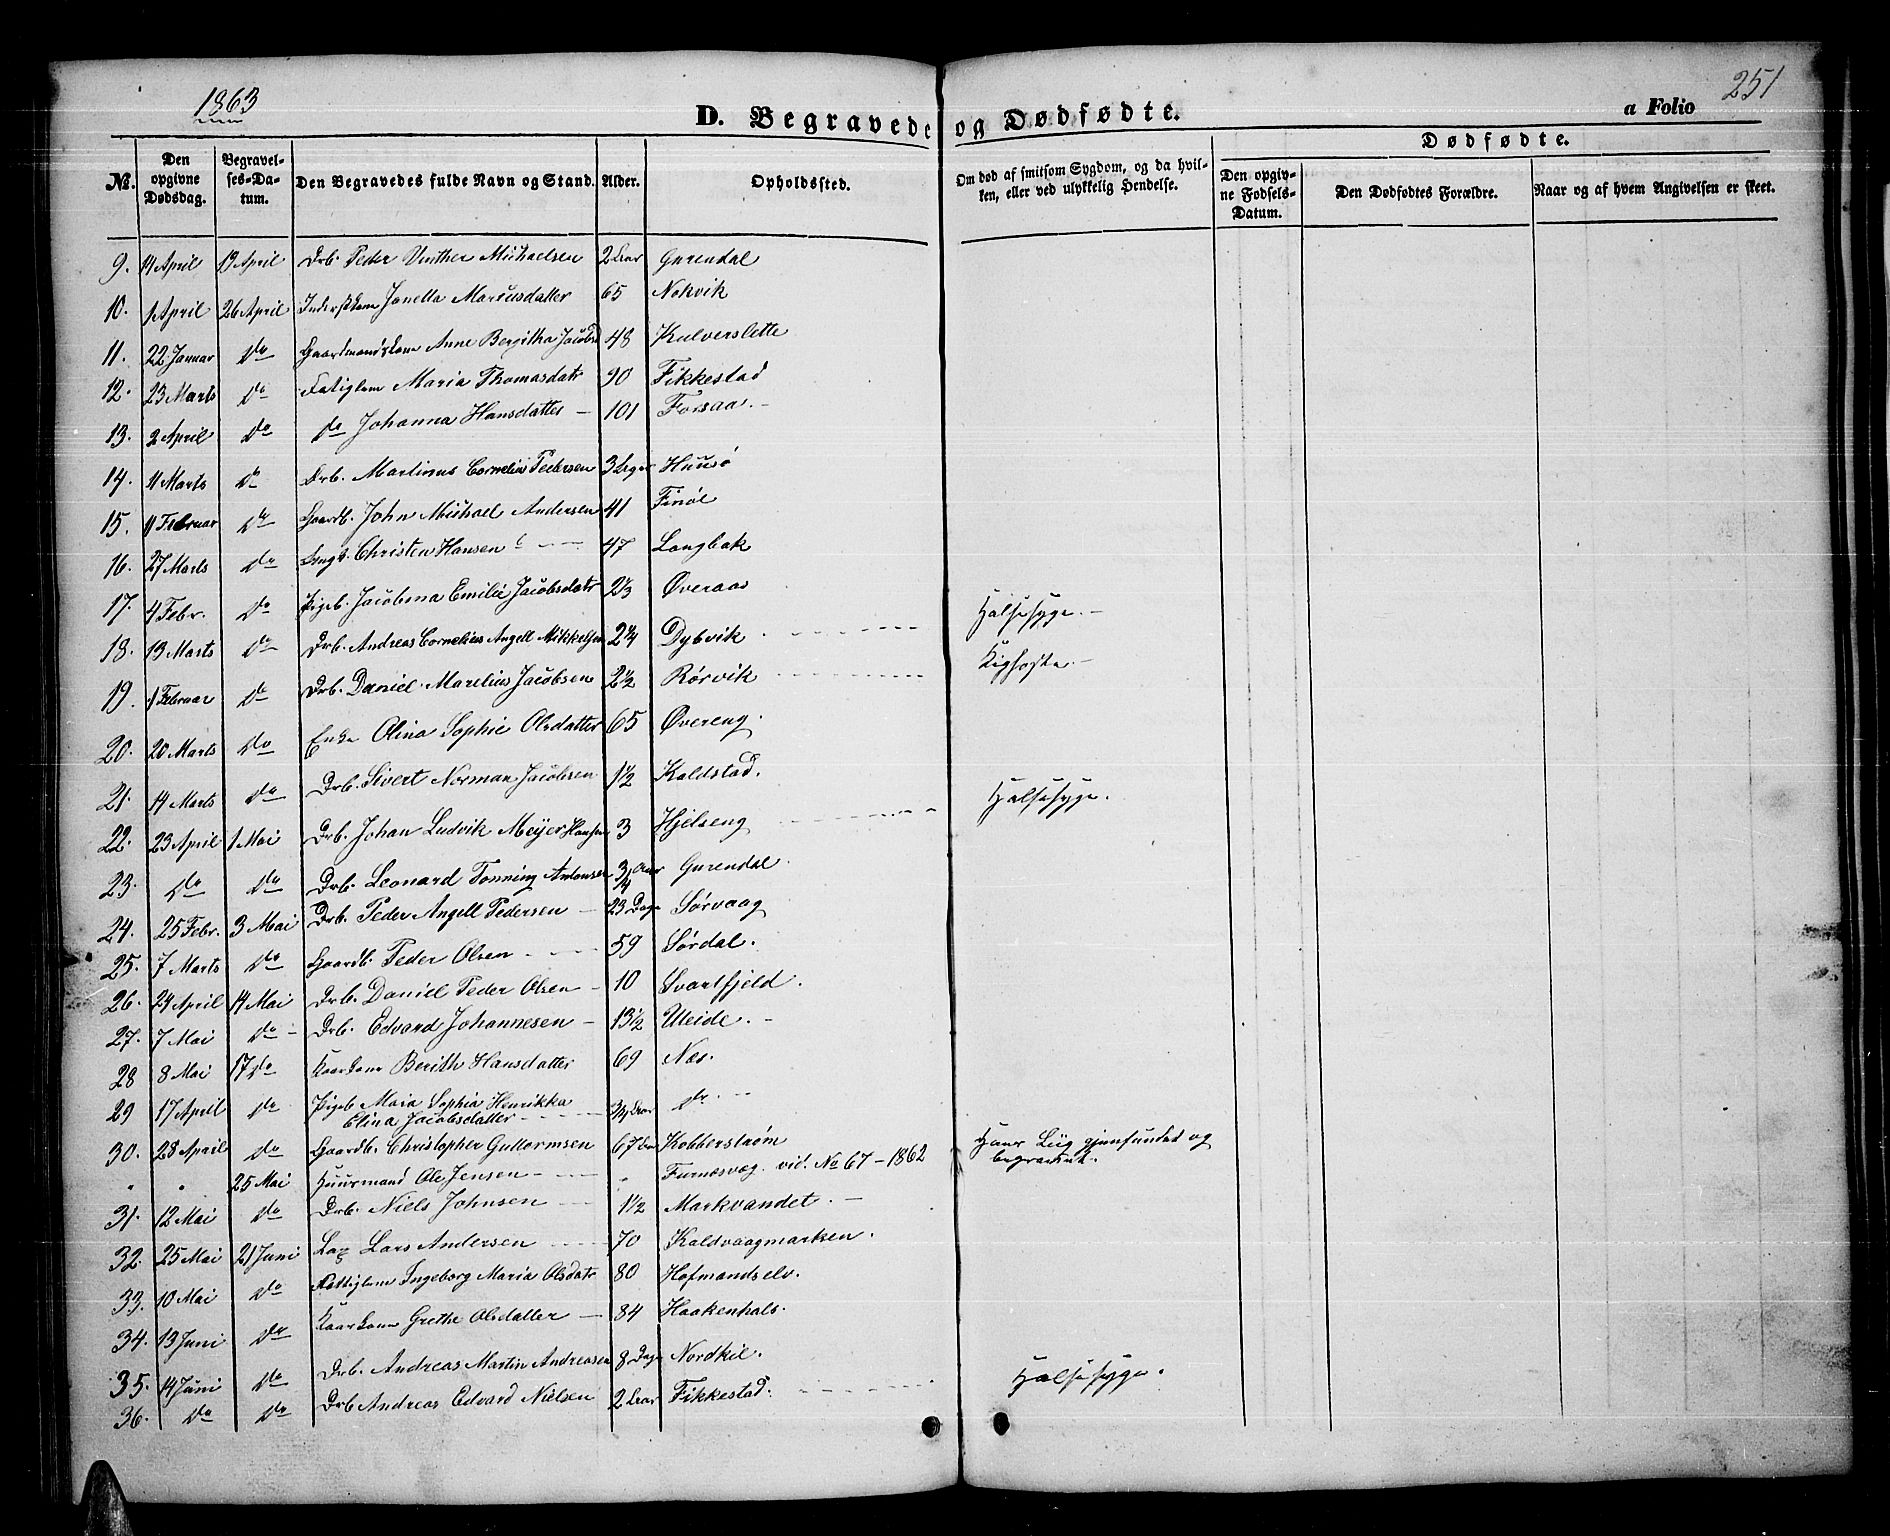 1863
251
D. Begravede og Dødfødte.
a Folio
Dødfødte.
No. Den opgivne Dødsdag. Begravelses-Datum. Den Begravedes fulde Navn og Stand. Alder. Opholdssted. Om død af smitsom Sygdom, og da hvilken, eller ved ulykkelig Hendelse. Den opgivne Fødsels-Datum. Den Dødfødtes Forældre. Naar og af hvem Angivelsen er skeet.
9. 14 April 19 April Drb. Peder Vinther Michaelsen 2 Aar Gurendal
10. 1 April 26 April Janetta Marcusdatter 65 Nokvik
11. 22 Januar Do Gaardmandskone Anne Bergitha Jacobsd 48 Kulverslette
12. 23 Marts Do Fatiglem Maria Thomasdatr 90 Fikkestad
13. 2 April Do Do Johanna Hansdatter - 101 Forsaa. -
14. 11 Marts Do Drb. Martinus Cornelius Pedersen 3 Uger Huusø
15. 11 Februar Do Gaardb. John Michael Andersen 41 Finøl
16. 27 Marts Do Christen Hansen - - 47 Langbak
17. 4 Febr. Do Pigeb. Jacobina Emilie Jacobsdatr 2 1/3 Øveraas
Halsesyge. -
18. 13 Marts Do Drb. Andreas Cornelius Angell Mikkelsen 2 1/4 Dybvik
Kighoste. -
19. 1 Februar Do Drb. Daniel Marelius Jacobsen 2 1/2 Rørvik
20. 20 Marts Do Enke Olina Sophie Olsdatter 65 Øvereng.
21. 14 Marts Do Drb. Sivert Norman Jacobsen 1 1/2 Kaldstad.
Halsesyge.
22. 23 April 1 Mai Drb. Johan Ludvik Meyer Hansen 3 Hjelseng
23. Do Do Drb. Leonard Tønning Antonsen 3/4 Aar Gurendal.
24. 25 Febr. 3 Mai Drb. Peder Angell Pedersen - 23 Dage Sørvaag
25. 7 Marts Do Gaardb. Peder Olsen - - 59 Sørdal.
26. 24 April 14 Mai Drb. Daniel Peder Olsen - 10 Svartfjeld.
27. 7 Mai Do - Drb. Edvard Johannesen - 13 1/2 Uleide. -
28 8 Mai 17 Do Kaarkone Berith Hansdatter 69 Næs.
29 17 April Do Pigeb Maia Sophia Henrikka
Elina Jacobsdatter - - 3/4 Aar Do. - -
30. 28 April Do Gaardb. Christopher Guttormsen 67 Aar Kobberstrøm
Hans Liig gjenfundet og
begravet.
" " 25 Mai Huusmand Ole Jensen - - " Furnesvag. vid. No 67 - 1862
31. 12 Mai Do Drb. Niels Johnsen - 1 1/2 Markvandet. -
32. 25 Mai 21 Juni Lap Lars Andersen 70 Kaldvaagmarken.
33. 10 Mai Do Fattiglem Ingeborg Maria Olsdatr 80 Hofmandselv.
34. 13 Juni Do Kaarkone Grethe Olsdatter - 84 Haakenhals.
35. 14 Juni Do Drb. Andreas Martin Andreasen 8 Dage Nordkil.
Halsesyge.
36. Do Do Drb Andreas Edvard Nielsen 2 Aar Fikkestad.